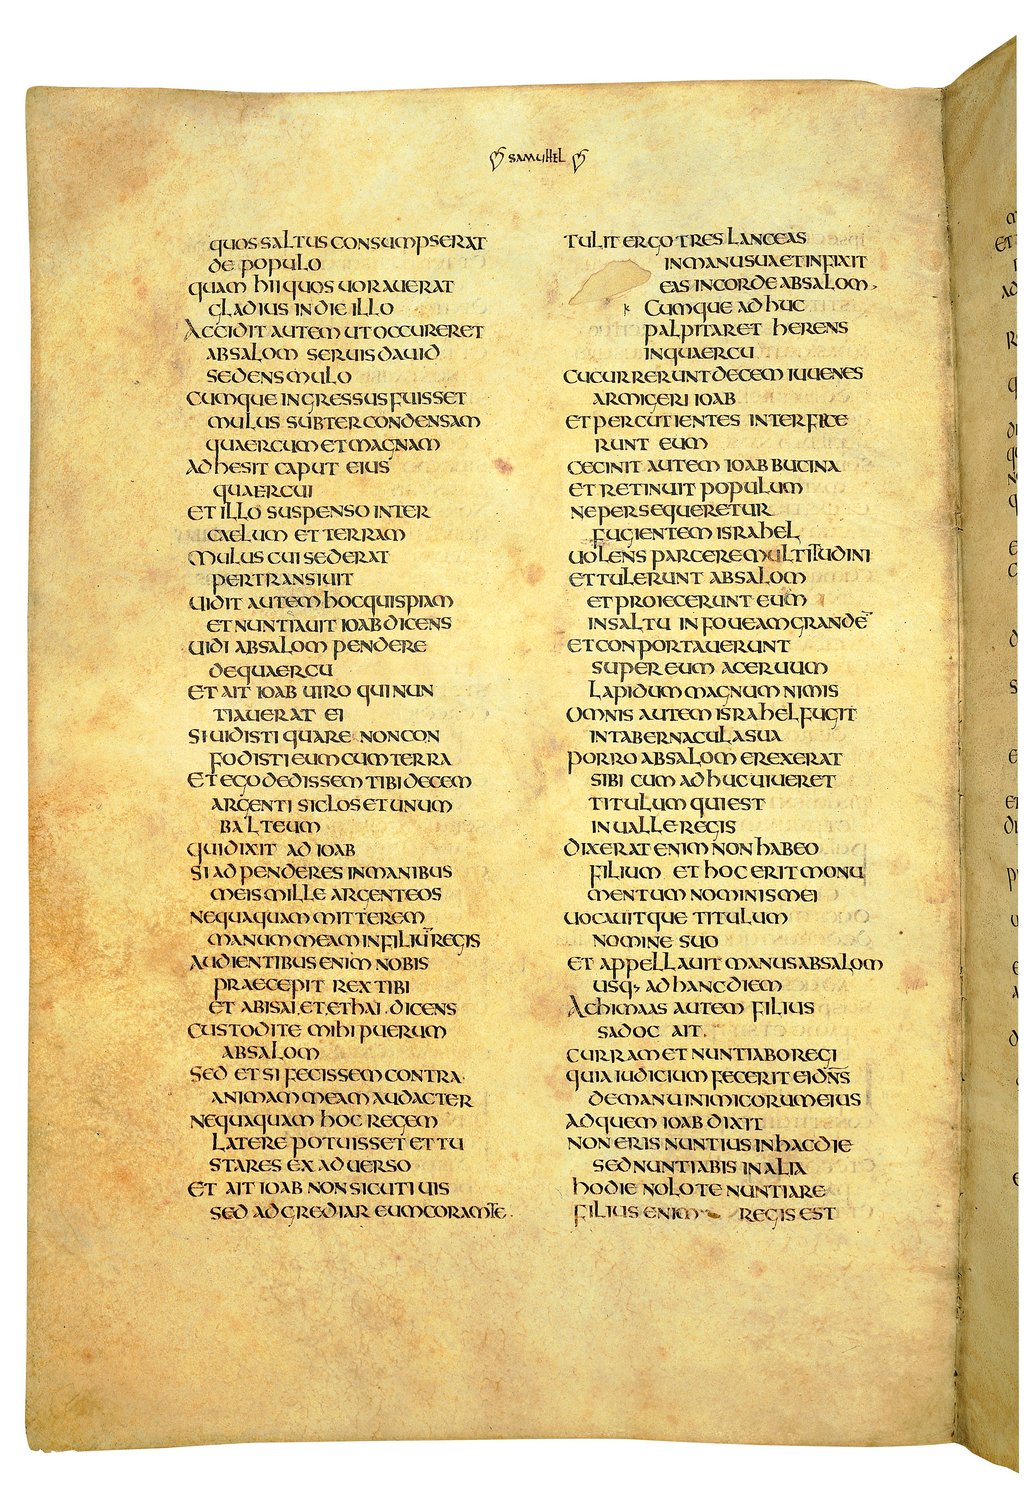 SAMUHEL
QUOS SALTUS CONSUMPSERAT
DE POPULO
QUAM HII QUOS UORAUERAT
GLADIUS IN DIE ILLO
ACCIDIT AUTEM UT OCCURERET
ABSALOM SERUIS DAUID
SEDENS MULO
CUMQUE INGRESSUS FUISSET
MULUS SUBTER CONDENSAM
QUAERCUM ET MAGNAM
ADHESIT CAPUT EIUS
QUAERCUI
ET ILLO SUSPENSO INTER
CAELUM ET TERRAM
MULUS CUI SEDERAT
PERTRANSIUIT
UIDIT AUTEM HOC QUISPIAM
ET NUNTIAUIT IOAB DICENS
UIDI ABSALOM PENDERE
DE QUAERCU
ET AIT IOAB UIRO QUI NUN
TIAUERAT EI
SI UIDISTI QUARE NON CON
FODISTI EUM CUM TERRA
ET EGO DEDISSEM TIBI DECEM
ARGENTI SICLOS ET UNUM
BALTEUM
QUI DIXIT AD IOAB
SI ADPENDERES IN MANIBUS
MEIS MILLE ARGENTEOS
NEQUAQUAM MITTEREM
MANUM MEAM IN FILIU̅ REGIS
AUDIENTIBUS ENIM NOBIS
PRAECEPIT REX TIBI
ET ABISAI.ET.ETHAI.DICENS
CUSTODITE MIHI PUERUM
ABSALOM
SED ET SI FECISSEM CONTRA
ANIMAM MEAM AUDACTER
NEQUAQUAM HOC REGEM
LATERE POTUISSET ET TU
STARES EX ADUERSO
ET AIT IOAB NON SICUT UIS
SED ADGREDIAR EUM CORAM TE.
TULIT ERGO TRES LANCEAS
IN MANU SUA ET INFIXIT
EAS IN CORDE ABSALOM
CUMQUE ADHUC
PALPITARET HERENS
IN QUAERCU
CUCURRERUNT DECEM IUUENES
ARMIGERI IOAB
ET PERCUTIENTES INTERFICE
RUNT EUM
CECINIT AUTEM IOAB BUCINA
ET RETINUIT POPULUM
NE PERSEQUERETUR
FUGIENTEM ISRAHEL
UOLENS PARCERE MULTITUDINI
ET TULERUNT ABSALOM
ET PROIECERUNT EUM
IN SALTU IN FOUEAM GRANDE̅
ET CONPORTAUERUNT
SUPER EUM ACERUUM
LAPIDUM MAGNUM NIMIS
OMNIS AUTEM ISRAHEL FUGIT
IN TABERNACULA SUA
PORRO ABSALOM EREXERAT
SIBI CUM ADHUC UIUERET
TITULUM QUI EST
IN UALLE REGIS
DIXERAT ENIM NON HABEO
FILIUM ET HOC ERIT MONU
MENTUM NOMINIS MEI
UOCAUITQUE TITULUM
NOMINE SUO
ET APPELLAUIT MANUS ABSALOM
USQ; AD HANC DIEM
ACHIMAAS AUTEM FILIUS
SADOC AIT.
CURRAM ET NUNTIABO REGI
QUIA IUDICIUM FECERIT EI DN̅S
DE MANU INIMICORUM EIUS
AD QUEM IOAB DIXIT
NON ERIS NUNTIUS IN HAC DIE
SED NUNTIABIS IN ALIA
HODIE NOLO TE NUNTIARE
FILIUS ENIM REGIS EST